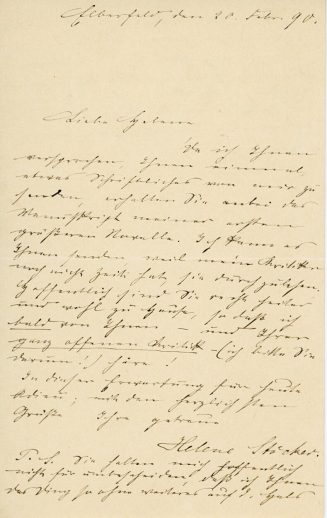 Elberfeld, den 20. Febr. 90.
Liebe Helene
Da ich Ihnen
versprochen, Ihnen einmal,
etwas Schriftliches von mir zu
senden, erhalten Sie anbei das
Manuskript meiner ersten
größeren Novelle. Ich kann es
Ihnen senden weil mein
noch nicht Zeit hat sie durchzusehen.
Hoffentlich sind Sie recht heiter
und wohl zu Hause, so daß ich
bald von Ihnen – und Ihrer
ganz offenen Kritik (ich bitte Sie
darum!) höre!
In dieser Erwartung für heute
Adieu; mit den herzlichsten
Grüßen Ihre getreue
Helene Stöcker.
P. S. Sie halten mich hoffentlich
nicht für unbescheiden, daß ich Ihnen
das Ding so ohne weiteres auf d. Hals